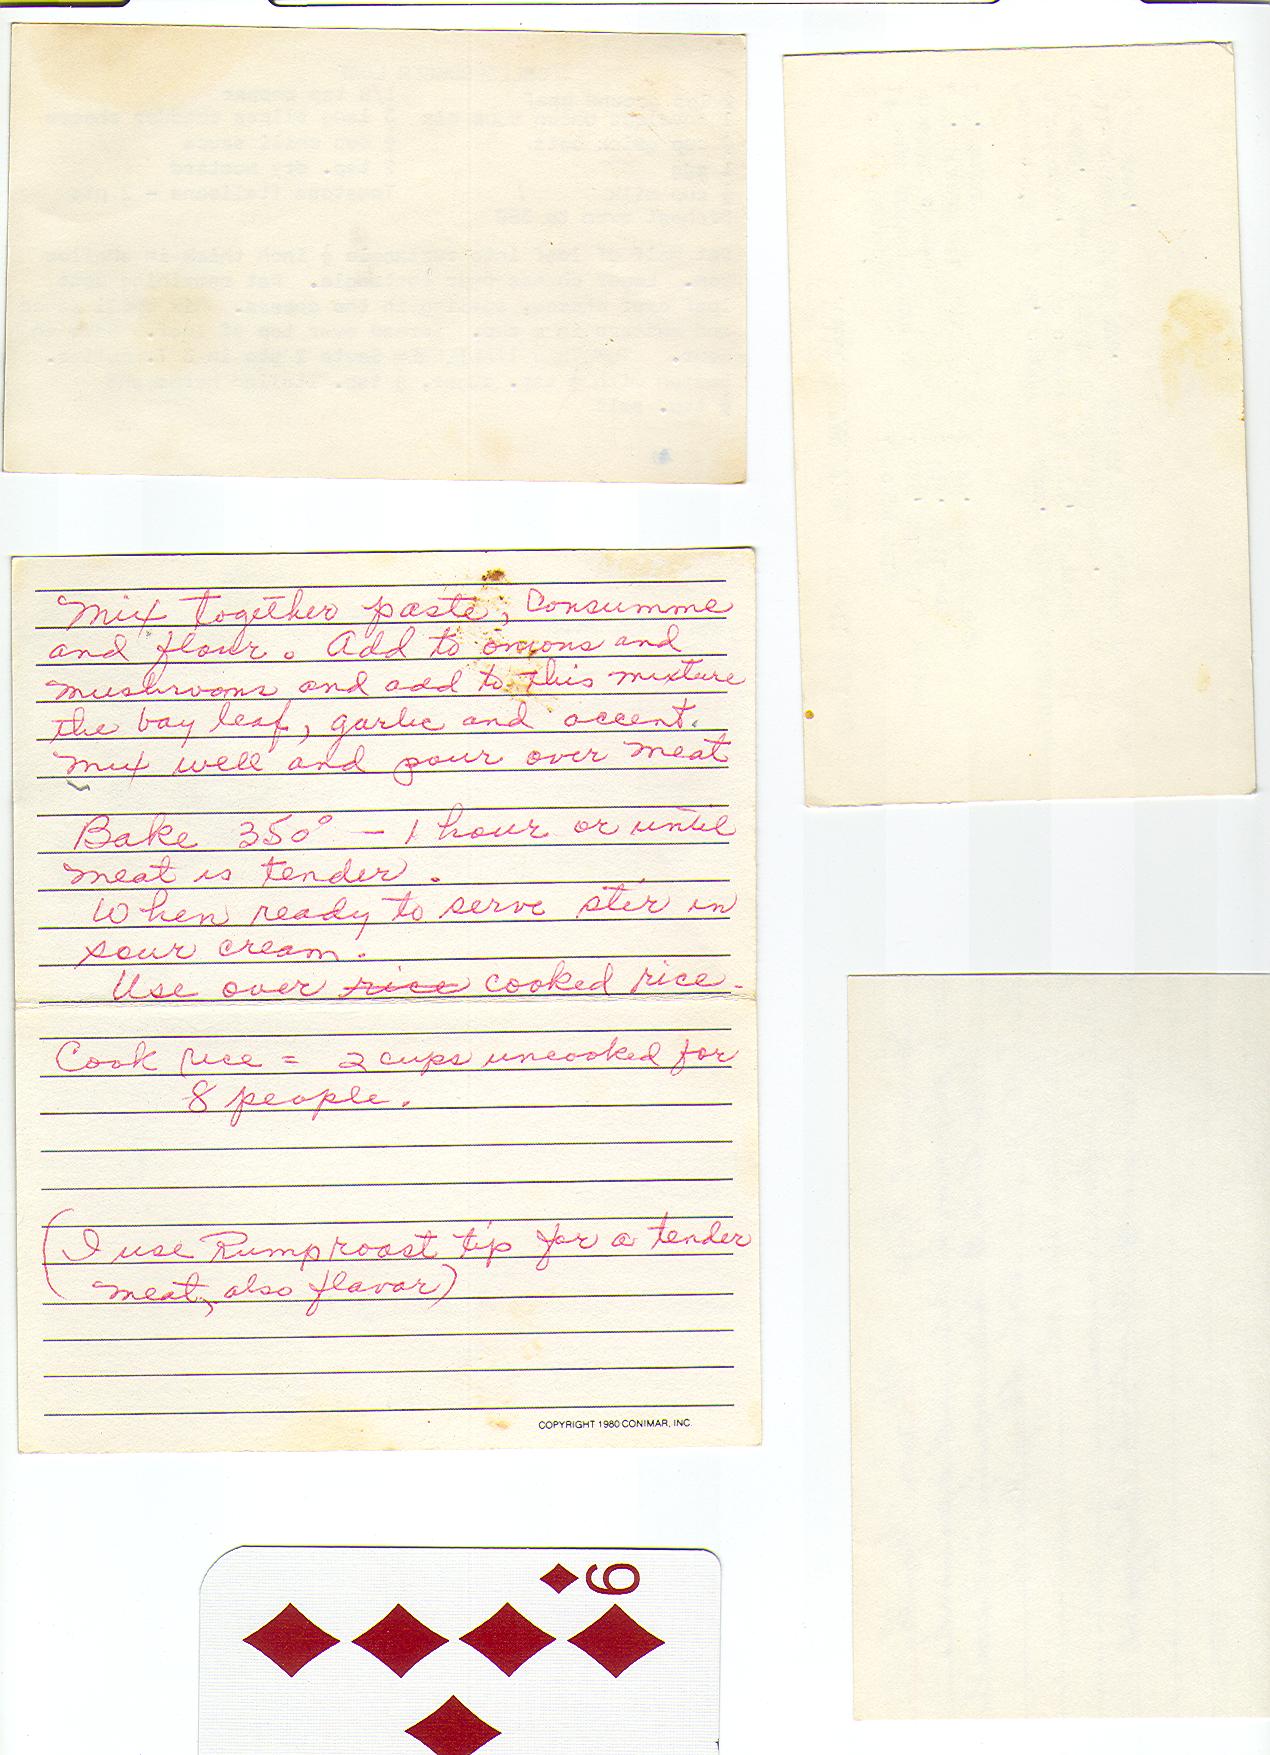 Mix together paste, Consumme
and flour. Add to onions and
mushrooms and add to this mixture
the bay leaf, garlic and accent.
Mix well and pour over meat
Bake 350° – 1 hour or until
meat is tender.
When ready to serve stir in
sour cream.
Use over rice cooked rice.
Cook rice = 2 cups uncooked for
8 people.
(I use Rump roast tip for a tender
meat, also flavor)
COPYRIGHT 1980 CONIMAR, INC.
9